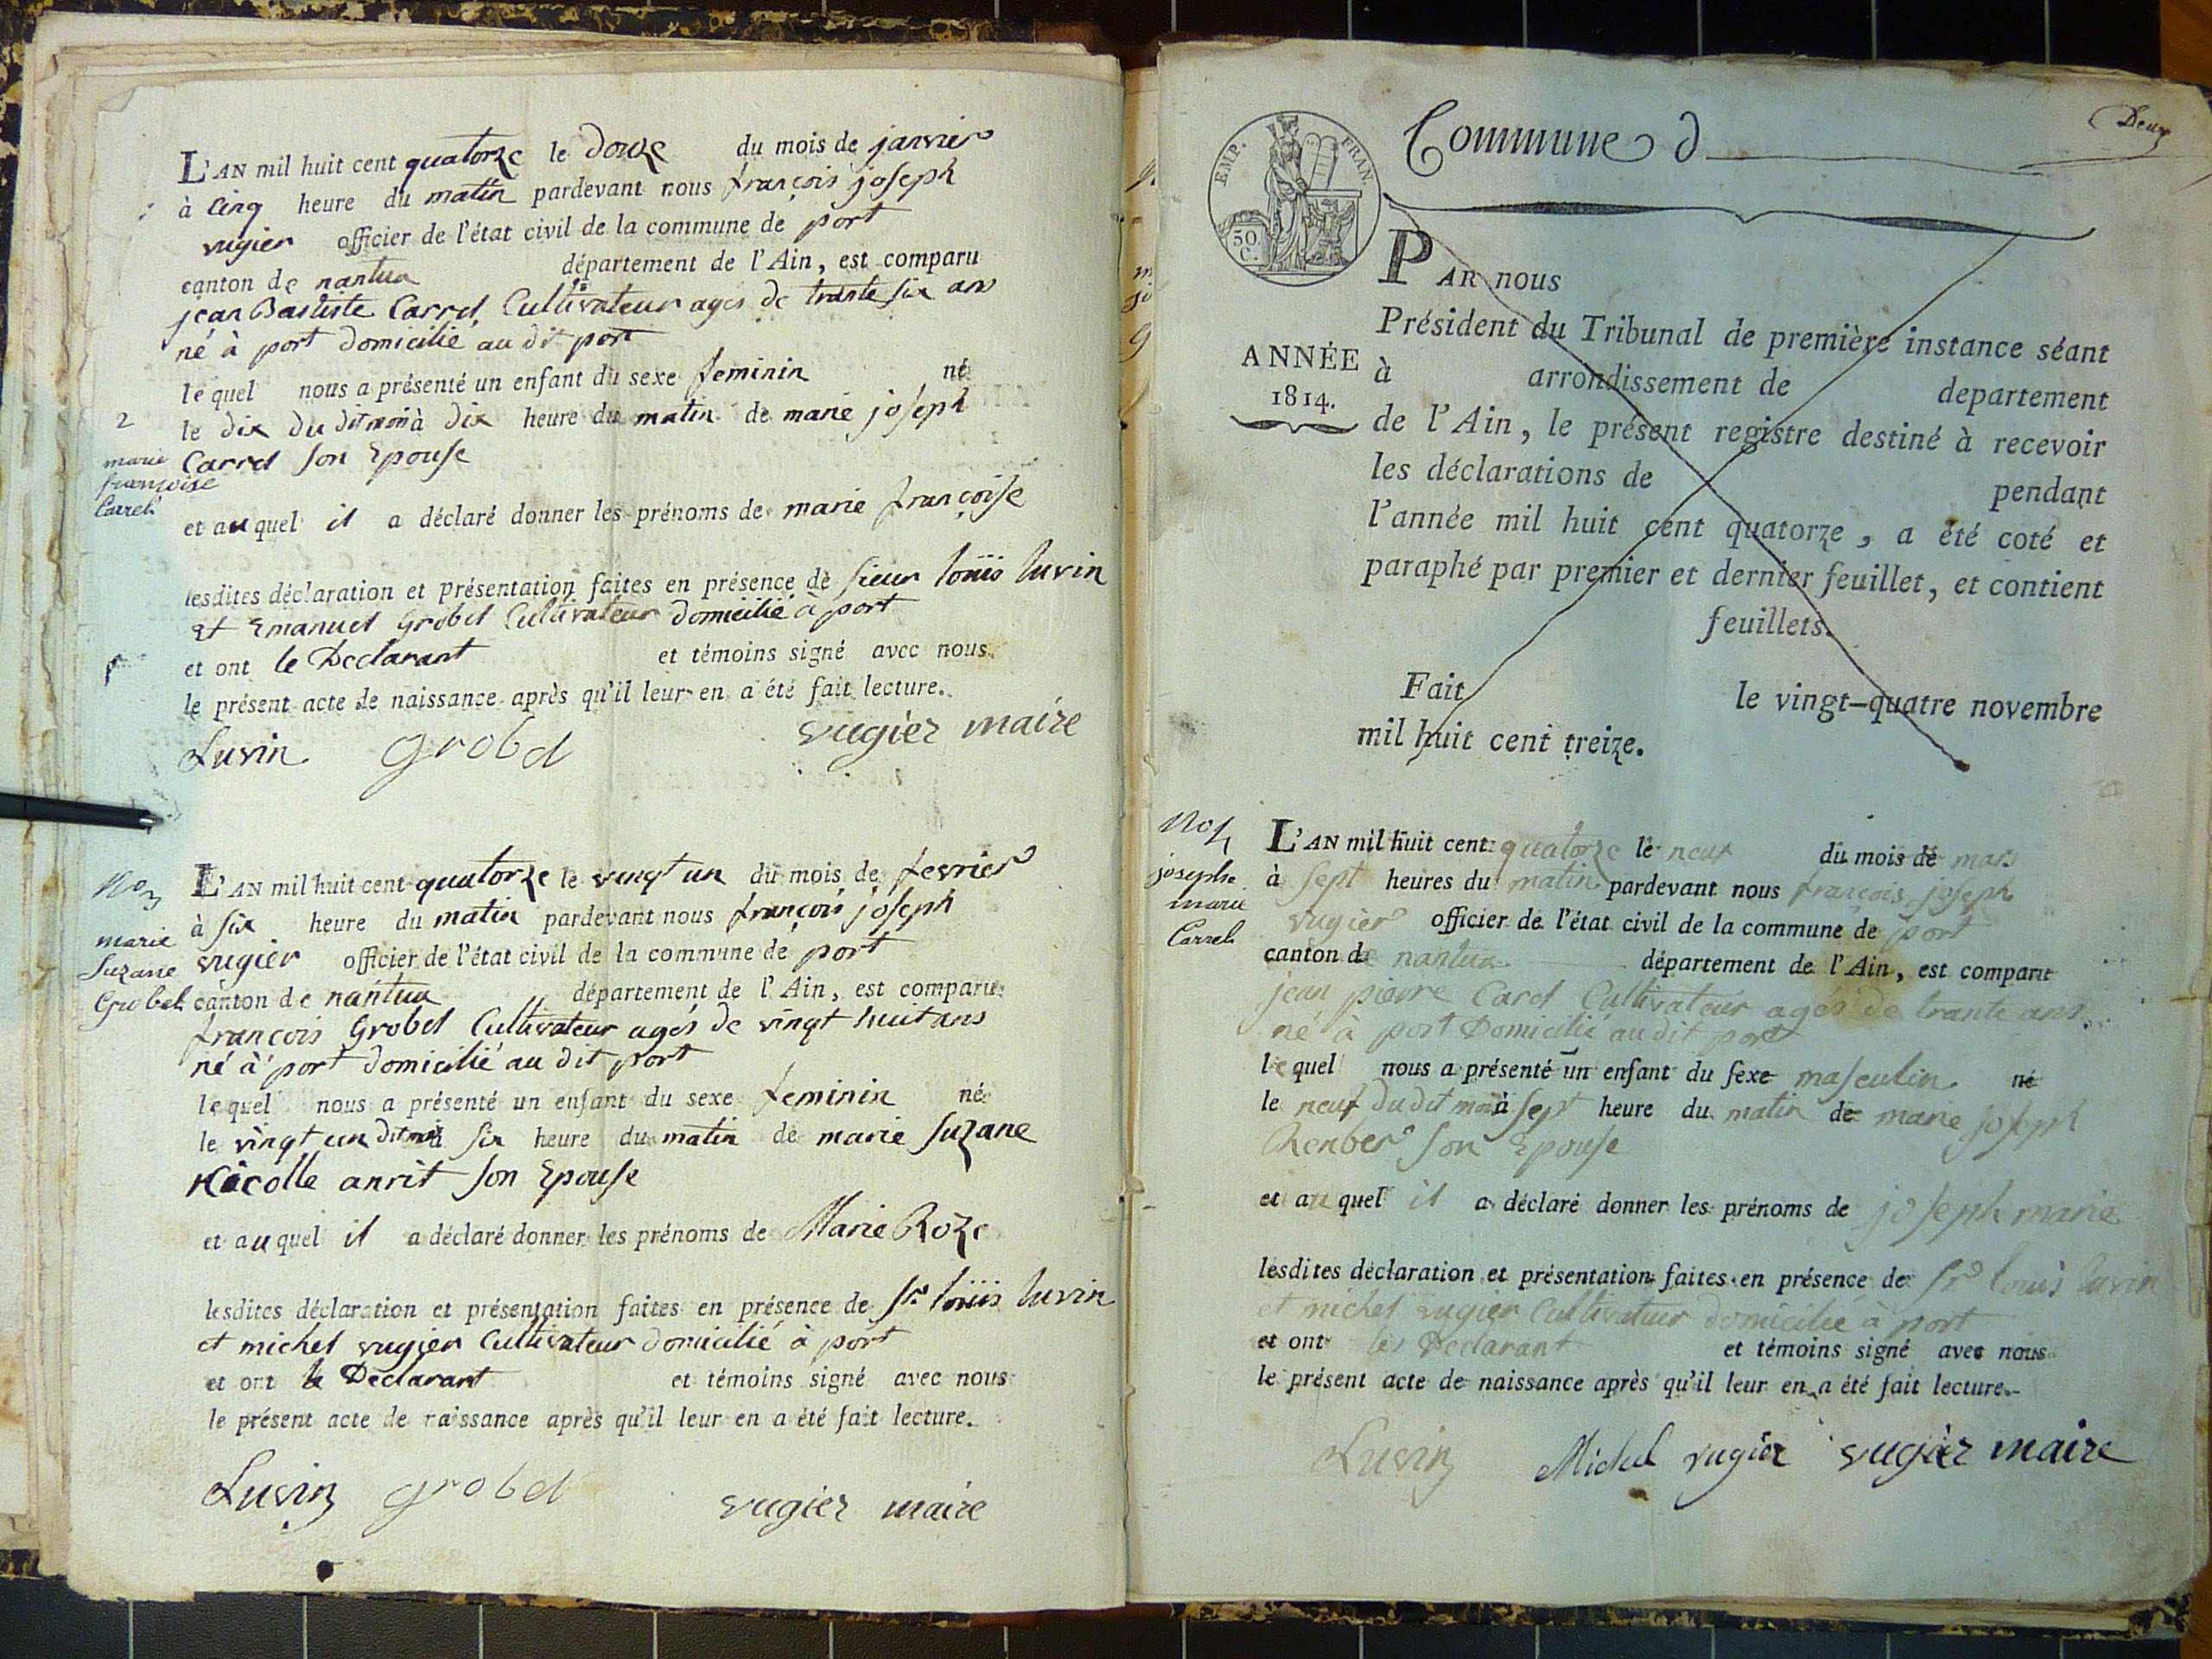 L'AN mil huit cent quatorze le douze du mois de janvier
à cinq heure du matin pardevant nous françois joseph
vugier officier de l'état civil de la commune de port
canton de nantua département de l'Ain, est comparu
jean Baptiste Carrel Cultivateur agés de trante six ans
né à port domicilié au dit port
lequel nous a présenté un enfant du sexe feminin né
le dix du dit mois à dix heure du matin de marie joseph
Carrel son Epouse
2
marie
françoise
Carrel
et auquel il a déclaré donner les prénoms de marie françoise
lesdites déclaration et présentation faites en présence de sieur louis luvin
et Emanuel Grobel Cultivateur domicilié à port
et ont le Déclarant et témoins signé avec nous
le présent acte de naissance après qu'il leur en a été fait lecture.
Luvin grobel vugier maire
No 3
marie
Suzane
Grobel
L'AN mil huit cent quatorze le vingt un du mois de fevrier
à six heure du matin pardevant nous françois joseph
vugier officier de l'état civil de la commune de port
canton de nantua département de l'Ain, est comparu
françois Grobel Cultivateur agés de vingt huit ans
né à port domicilié au dit port
lequel nous a présenté un enfant du sexe feminin né
le vingt un dit mois à six heure du matin de marie suzane
Nicolle anrit son Epouse
et auquel il a déclaré donner les prénoms de Marie Roze
lesdites déclaration et présentation faites en présence de sr louis luvin
et michel vugier Cultivateur domicilié à port
et ont le Déclarant et témoins signé avec nous
le présent acte de naissance après qu'il leur en a été fait lecture.
Luvin grobel vugier maire
Deux
Commune d
EMP. FRAN.
50 C.
ANNÉE
1814.
PAR nous
Président du Tribunal de première instance séant
à arrondissement de departement
de l'Ain, le présent registre destiné à recevoir
les déclarations de pendant
l'année mil huit cent quatorze, a été coté et
paraphé par premier et dernier feuillet, et contient
feuillets.
Fait le vingt-quatre novembre
mil huit cent treize.
No 4
josephe
marie
Carrel
L'AN mil huit cent quatorze le neuf du mois de mars
à sept heures du matin pardevant nous françois joseph
vugier officier de l'état civil de la commune de port
canton de nantua département de l'Ain, est comparu
jean pierre Carel Cultivateur agés de trante ans
né à port Domicilié au dit port
lequel nous a présenté un enfant du sexe masculin né
le neuf du dit mois à sept heure du matin de marie joseph
son Epouse
et auquel il a déclaré donner les prénoms de joseph marie
lesdites déclaration et présentation faites en présence de sr louis luvin
et michel vugier Cultivateur domicilié à port
et ont le Declarant et témoins signé avec nous
le présent acte de naissance après qu'il leur en a été fait lecture.
Luvin Michel vugier vugier maire